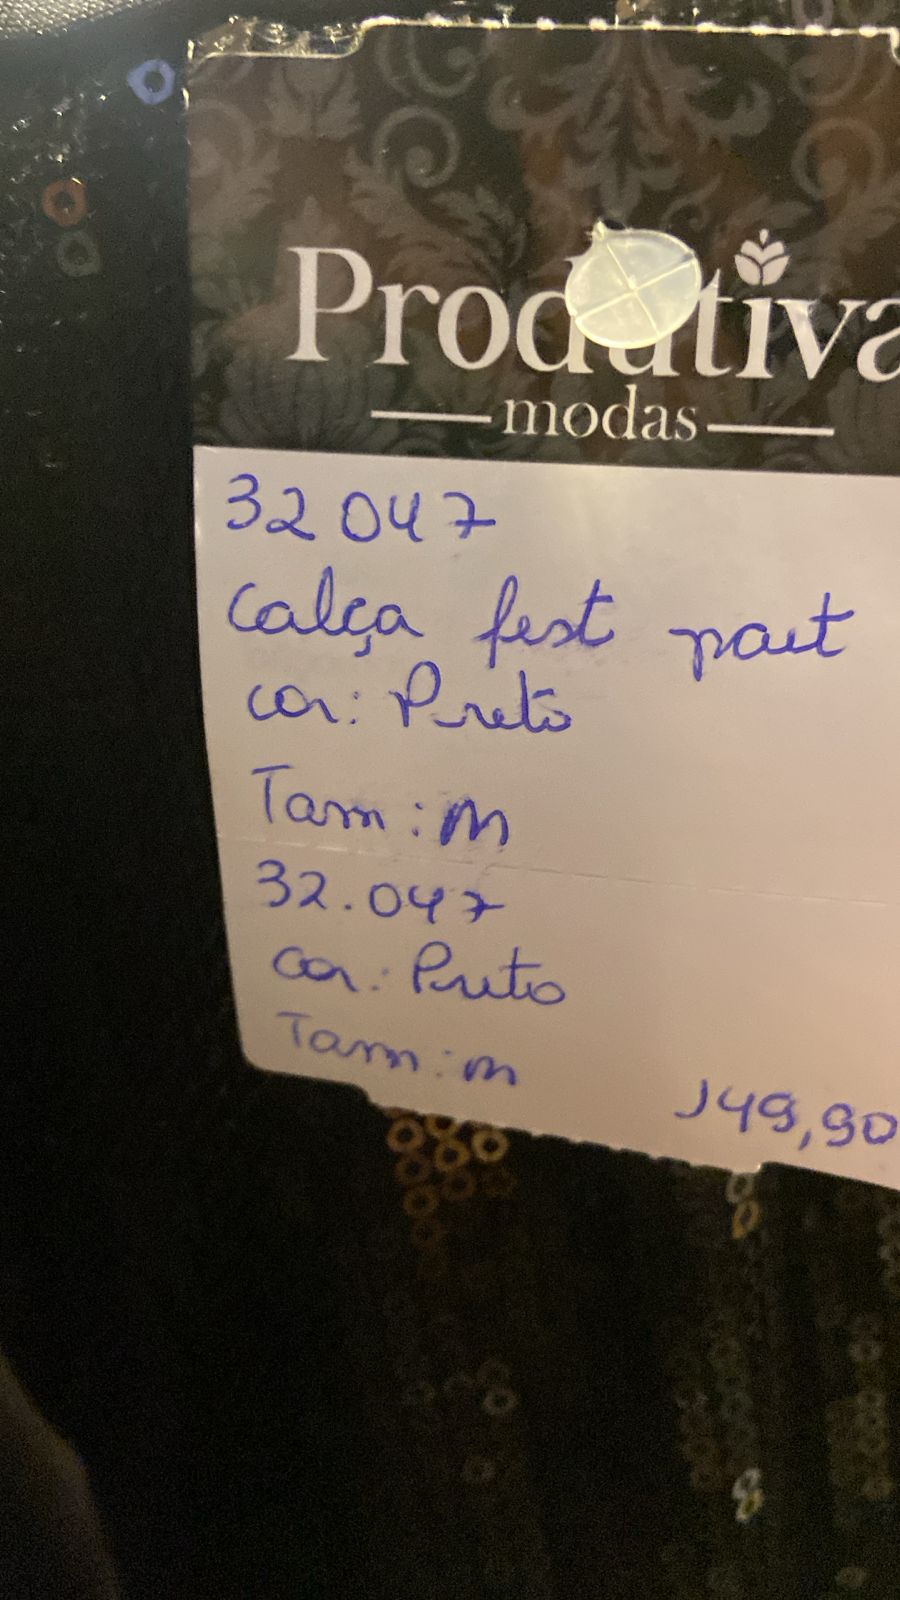 Produtiva
modas
32047
Calça fest paet
cor: Preto
Tam: M
32.047
cor: Preto
Tam: m
149,90